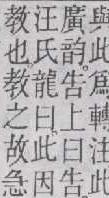 與此爲轉注此
廣韵告上曰告
汪氏龍曰此因
敎也敎之故急